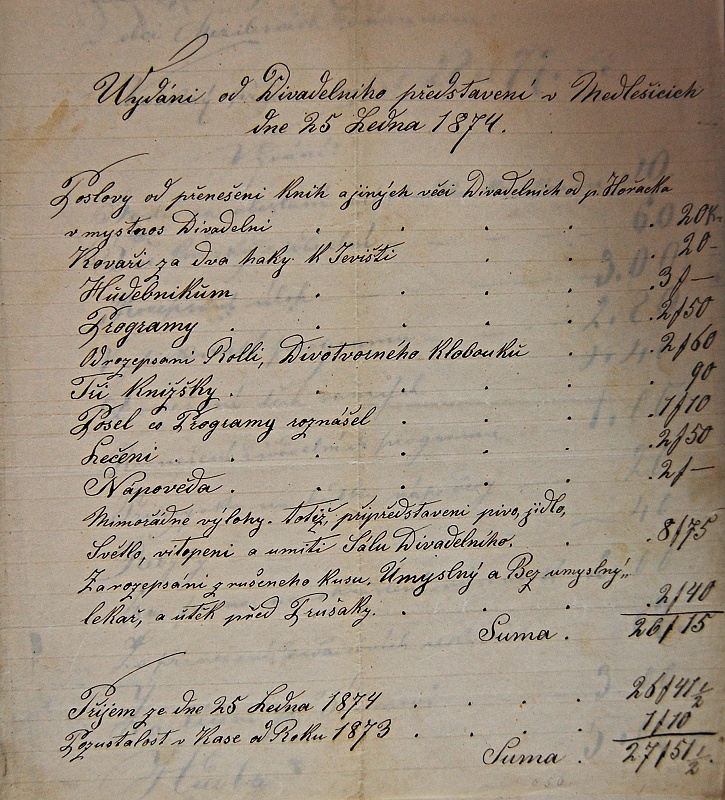 Wydáni od Divadelního představení v Medlešicich
dne 25 Ledna 1874.
Poslovy od přenešeni knih a jiných věci Divadelnich od p. Horačka
v mystnos Divadelni . . . . 20 Kr
Kovaři za dva haky k Jevišti . . 20-
Hudebnikům . . . . 3/—
Programy . . . . 2/50
Od rozepsani Rolli, Divotvorného Klobouku . 2/60
Tři Knižšky . . . . 90
Posel co Programy roznášel . . . 1/10
Lečeni . . . . 2/50
Napověda . . . . 2/—
Mimořádné výlohy. totiž, připředstaveni pivo, jidlo,
Světlo, vitopeni a umiti Salu Divadelního. . 8/75
Za rozepsáni zrušeneho kusu. Úmyslný a Bez umyslný
lekař, a útěk před Prušaky. . . . 2/40
Suma . 26/15
Přijem ze dne 25 Ledna 1874 . . . . 26/41 1/2
Pozustalost v Kase od Roku 1873 . . . . 1/10
Suma . 27/51 1/2.